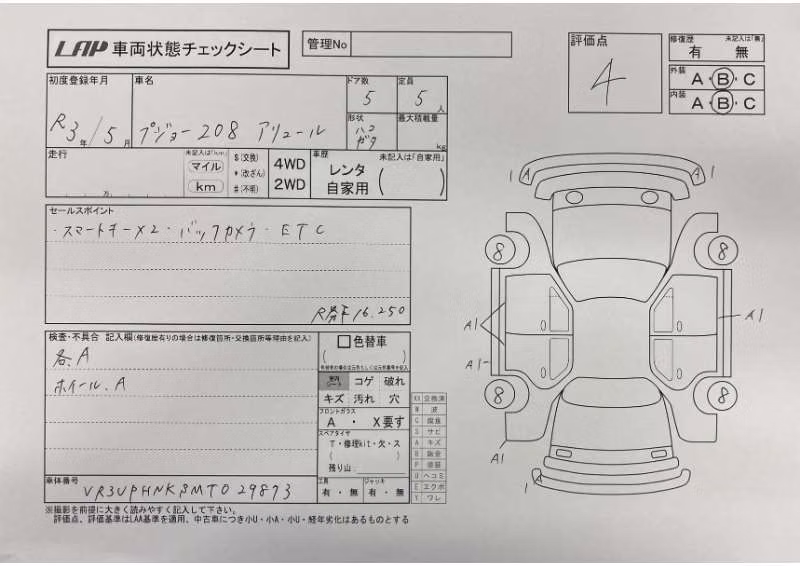 LAP 車両状態チェックシート
管理No
評価点
4
修復歴 未記入は「無」
有 無
外装 A・B・C
内装 A・B・C
初度登録年月
R3年/5月
車名
プジョー 208 アリュール
ドア数
5
定員
5人
形状
ハコガタ
最大積載量
kg
走行
万
未記入は「km」
マイル
km
$(交換)
*(改ざん)
#(不明)
4WD
2WD
車歴 未記入は「自家用」
レンタ
自家用
( )
セールスポイント
・スマートキー×2・バックカメラ・ETC
R券¥16.250
検査・不具合 記入欄(修復歴有りの場合は修復箇所・交換箇所等理由を記入)
各.A
ホイール.A
色替車
( )
コゲ 破れ
キズ 汚れ 穴
フロントガラス
A ・ X要す
スペアタイヤ
T・修理kit・欠・ス
( )
残り山
工具
有・無
ジャッキ
有・無
車体番号
VR3UPHNKSMT029873
XX 交換済
W 波
C 腐食
S サビ
A キズ
B 鈑金
P 塗装
U ヘコミ
E エクボ
Y ワレ
1 A
A 1
8
8
A1
A1
A1
8
8
A1
1 A
※撮影を前提に大きく読みやすく記入して下さい。
評価点、評価基準はLAA基準を適用、中古車につき小U・小A・小U・経年劣化はあるものとする